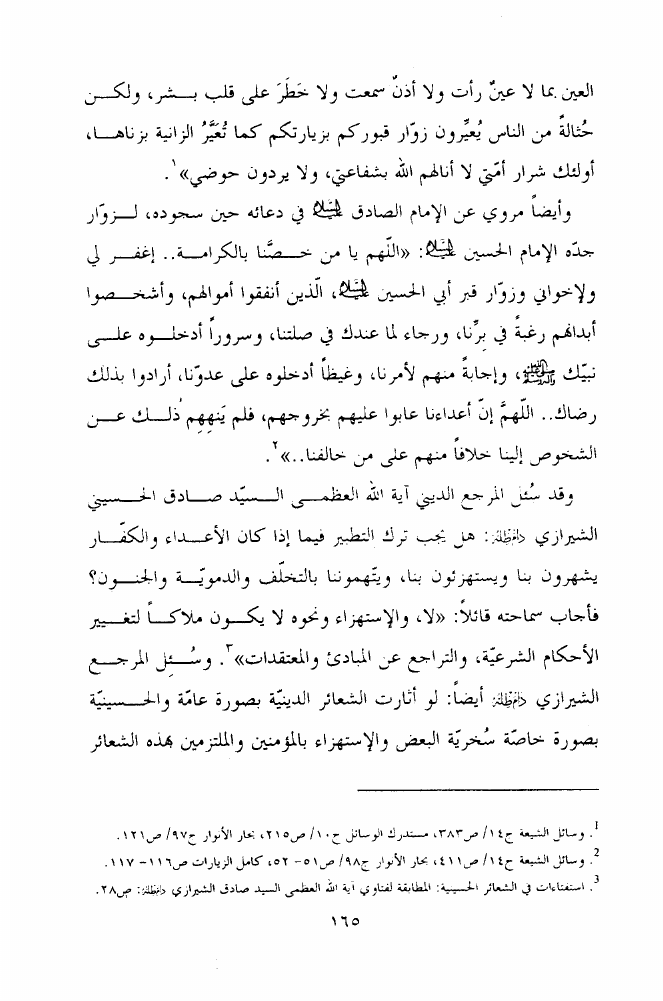 العين بما لا عينٌ رأت ولا أذنٌ سمعت ولا خَطَرَ على قلب بشر، ولكن
حُثالةً من الناس يُعيِّرون زوّار قبوركم بزيارتكم كما تُعَيَّرُ الزانية بزناها،
أولئك شرار أمّتي لا أنالهم الله بشفاعتي، ولا يردون حوضي»١.
وأيضاً مروي عن الإمام الصادق عليه السلام في دعائه حين سجوده، لزوّار
جدّه الإمام الحسين عليه السلام: «اللّهم يا من خصَّنا بالكرامة.. إغفر لي
ولإخواني وزوّار قبر أبي الحسين عليه السلام، الّذين أنفقوا أموالهم، وأشخصوا
أبدانهم رغبةً في بِرِّنا، ورجاء لما عندك في صلتنا، وسروراً أدخلوه على
نبيّك صلى الله عليه وآله، وإجابةً منهم لأمرنا، وغيظاً أدخلوه على عدوّنا، أرادوا بذلك
رضاك.. اللّهمَّ إنّ أعداءنا عابوا عليهم بخروجهم، فلم يَنهِهم ذلك عن
الشخوص إلينا خلافاً منهم على من خالفنا..»٢.
وقد سُئل المرجع الديني آية الله العظمى السيّد صادق الحسيني
الشيرازي دام ظله: هل يجب ترك التطبير فيما إذا كان الأعداء والكفّار
يشهرون بنا ويستهزئون بنا، ويتّهموننا بالتخلّف والدمويّة والجنون؟
فأجاب سماحته قائلاً: «لا، والإستهزاء ونحوه لا يكون ملاكاً لتغيير
الأحكام الشرعيّة، والتراجع عن المبادئ والمعتقدات»٣. وسُئل المرجع
الشيرازي دام ظله أيضاً: لو أثارت الشعائر الدينيّة بصورة عامّة والحسينيّة
بصورة خاصّة سُخريّة البعض والإستهزاء بالمؤمنين والملتزمين بهذه الشعائر
1. وسائل الشيعة ج١٤/ ص٣٨٣، مستدرك الوسائل ج١٠/ ص٢١٥، بحار الأنوار ج٩٧/ ص١٢١.
2. وسائل الشيعة ج١٤/ ص٤١١، بحار الأنوار ج٩٨/ ص٥١- ٥٢، كامل الزيارات ص١١٦- ١١٧.
3. استفتاءات في الشعائر الحسينية: المطابقة لفتاوي آية الله العظمى السيد صادق الشيرازي دام ظله: ص٢٨.
١٦٥